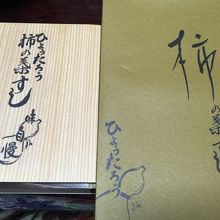 ひょうたろう
柿の葉すし
味自慢
柿の葉すし
ひょうたろう